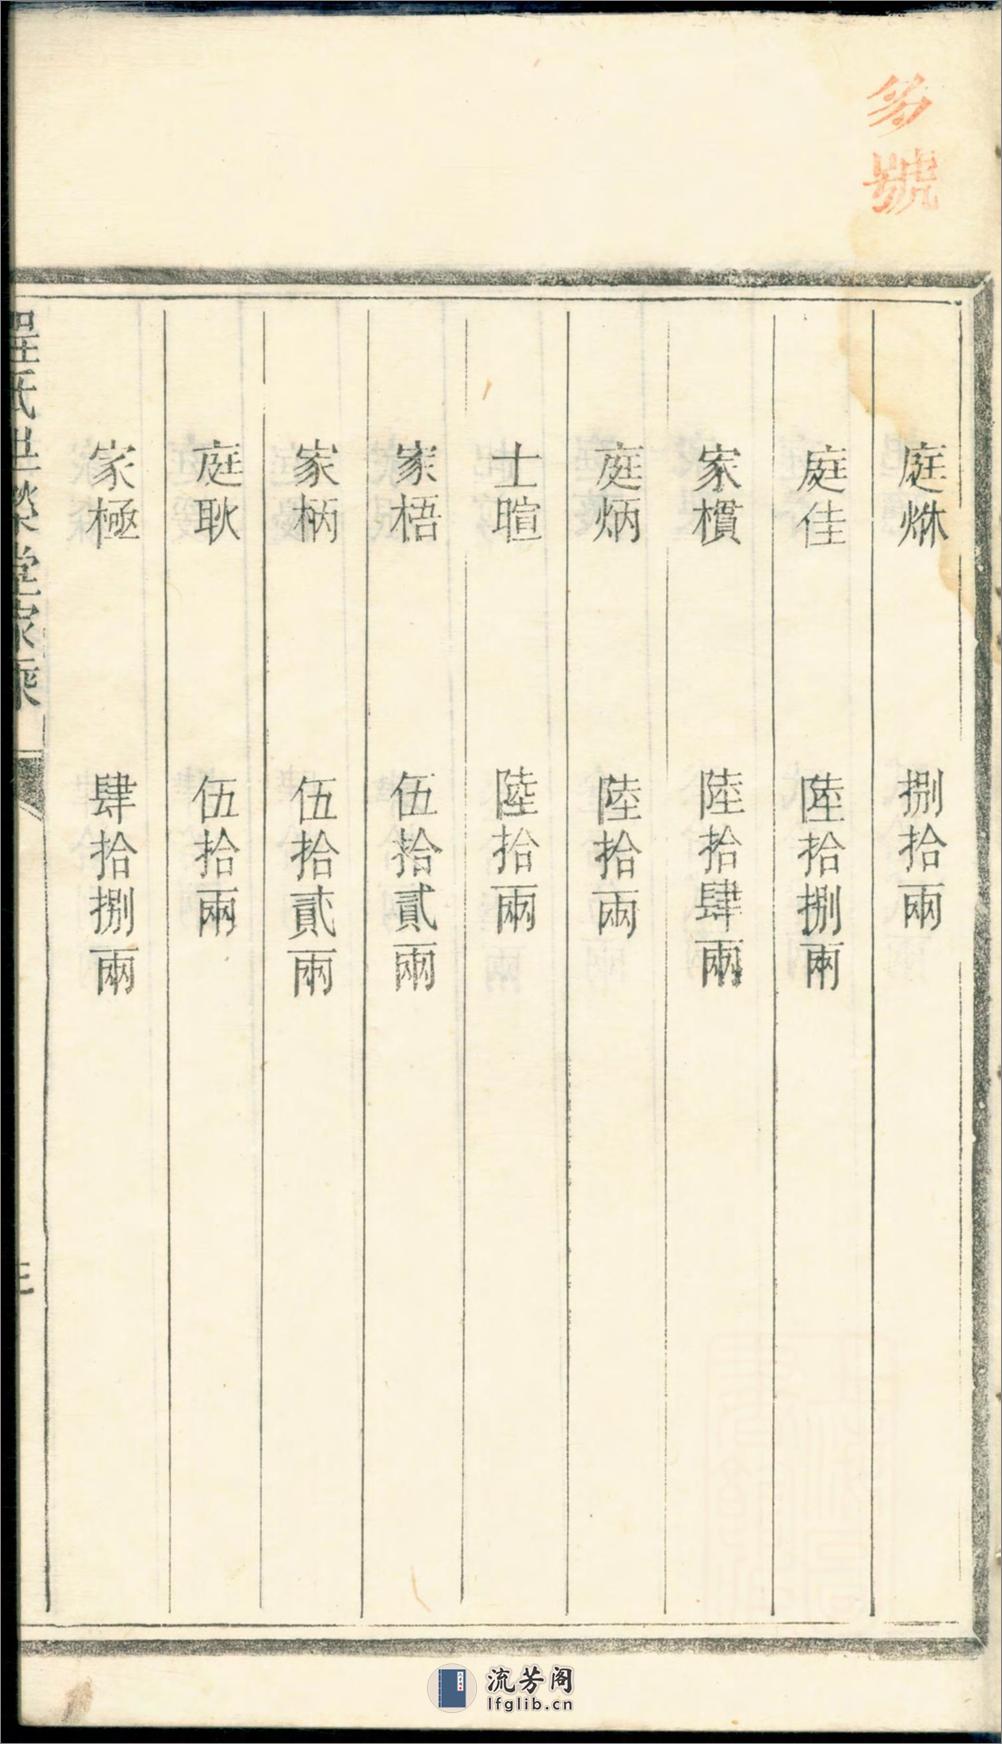 號
庭烌 捌拾兩
庭佳 陸拾捌兩
家樌 陸拾肆兩
庭炳 陸拾兩
士暄 陸拾兩
家梧 伍拾貳兩
家柄 伍拾貳兩
庭耿 伍拾兩
家極 肆拾捌兩
程氏世榮堂家乘
三
流芳阁
lfglib.cn